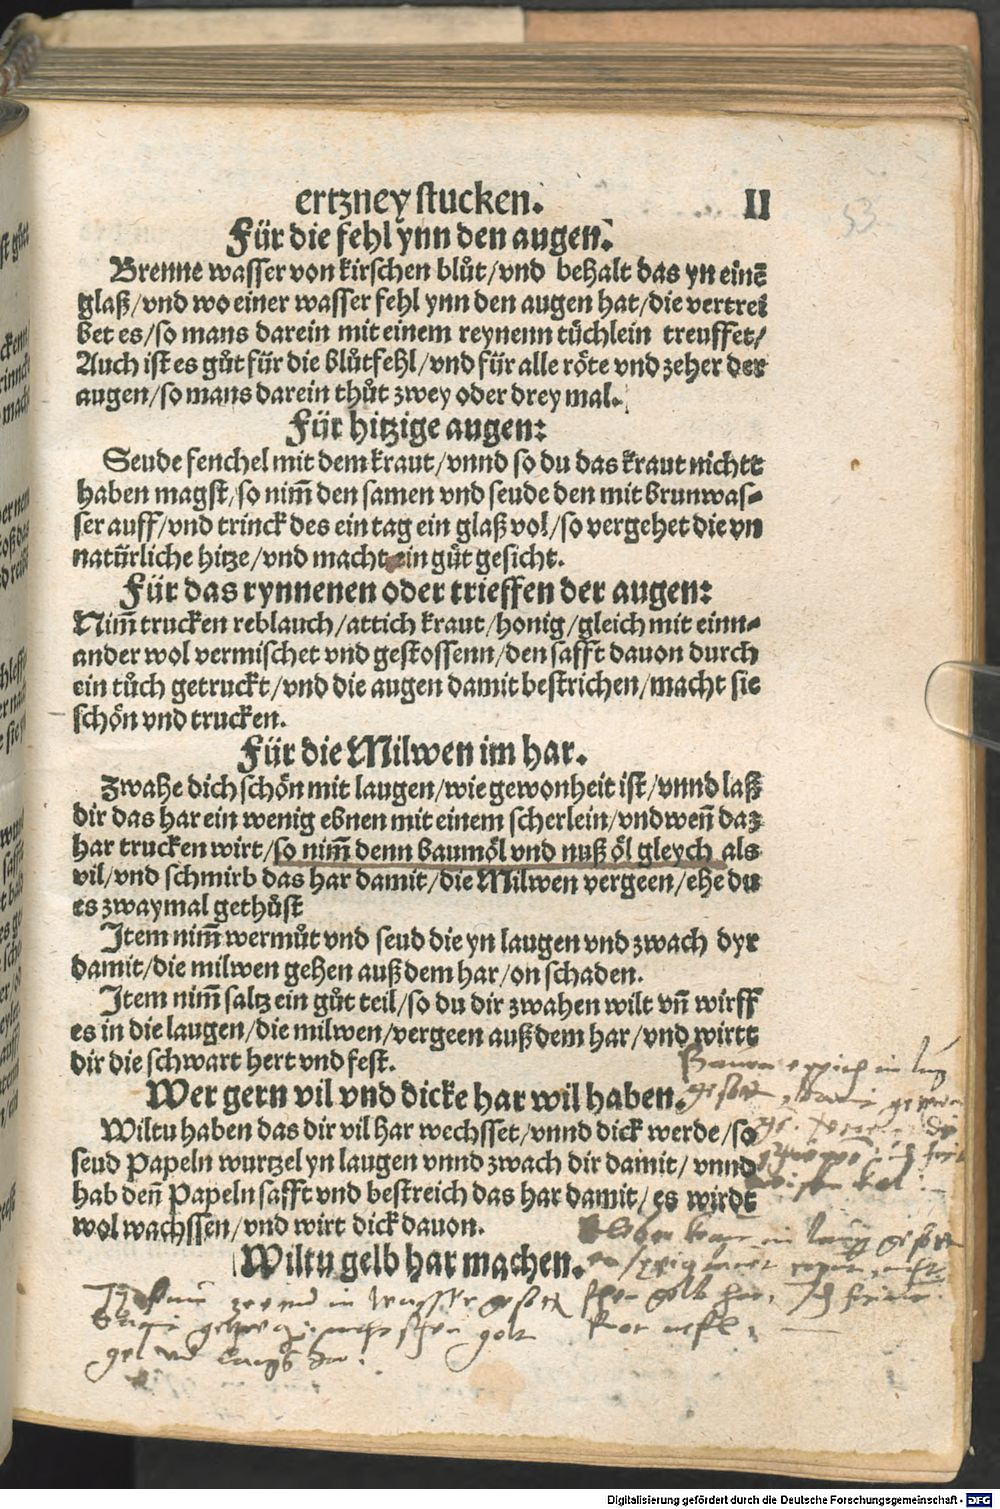 ertzney stucken. II
53
Für die fehl ynn den augen.
Brenne wasser von kirschen blůt/vnd behalt das yn einē
glaß/vnd wo einer wasser fehl ynn den augen hat/die vertrei
bet es/so mans darein mit einem reynenn tüchlein treuffet/
Auch ist es gůt für die blůtfehl/vnd für alle röte vnd zeher der
augen/so mans darein thůt zwey oder drey mal.
Für hitzige augen:
Seude fenchel mit dem kraut/vnnd so du das kraut nichtt
haben magst/so nim̄ den samen vnd seude den mit brunwas⸗
ser auff/vnd trinck des ein tag ein glaß vol/so vergehet die vn
natürliche hitze/vnd macht ein gůt gesicht.
Für das rynnenen oder trieffen der augen:
Nim̄ trucken reblauch/attich kraut/honig/gleich mit einn⸗
ander wol vermischet vnd gestossenn/den safft dauon durch
ein tůch getruckt/vnd die augen damit bestrichen/macht sie
schön vnd trucken.
Für die Milwen im har.
Zwahe dich schön mit laugen/wie gewonheit ist/vnnd laß
dir das har ein wenig ebnen mit einem scherlein/vnd wen̄ daz
har trucken wirt/so nim̄ denn baumöl vnd nuß öl gleych als
vil/vnd schmirb das har damit/die Milwen vergeen/ehe du
es zwaymal gethůst
Item nim̄ wermůt vnd seud die yn laugen vnd zwach dyr
damit/die milwen gehen auß dem har/on schaden.
Item nim̄ saltz ein gůt teil/so du dir zwahen wilt vn̄ wirff
es in die laugen/die milwen/vergeen auß dem har/vnd wirtt
dir die schwart hert vnd fest.
Wer gern vil vnd dicke har wil haben.
Wiltu haben das dir vil har wechsset/vnnd dick werde/so
seud Papeln wurtzel yn laugen vnnd zwach dir damit/vnnd
hab den̄ Papeln safft vnd bestreich das har damit/es wirdt
wol wachssen/vnd wirt dick dauon.
Wiltu gelb har machen.
Digitalisierung gefördert durch die Deutsche Forschungsgemeinschaft - DFG